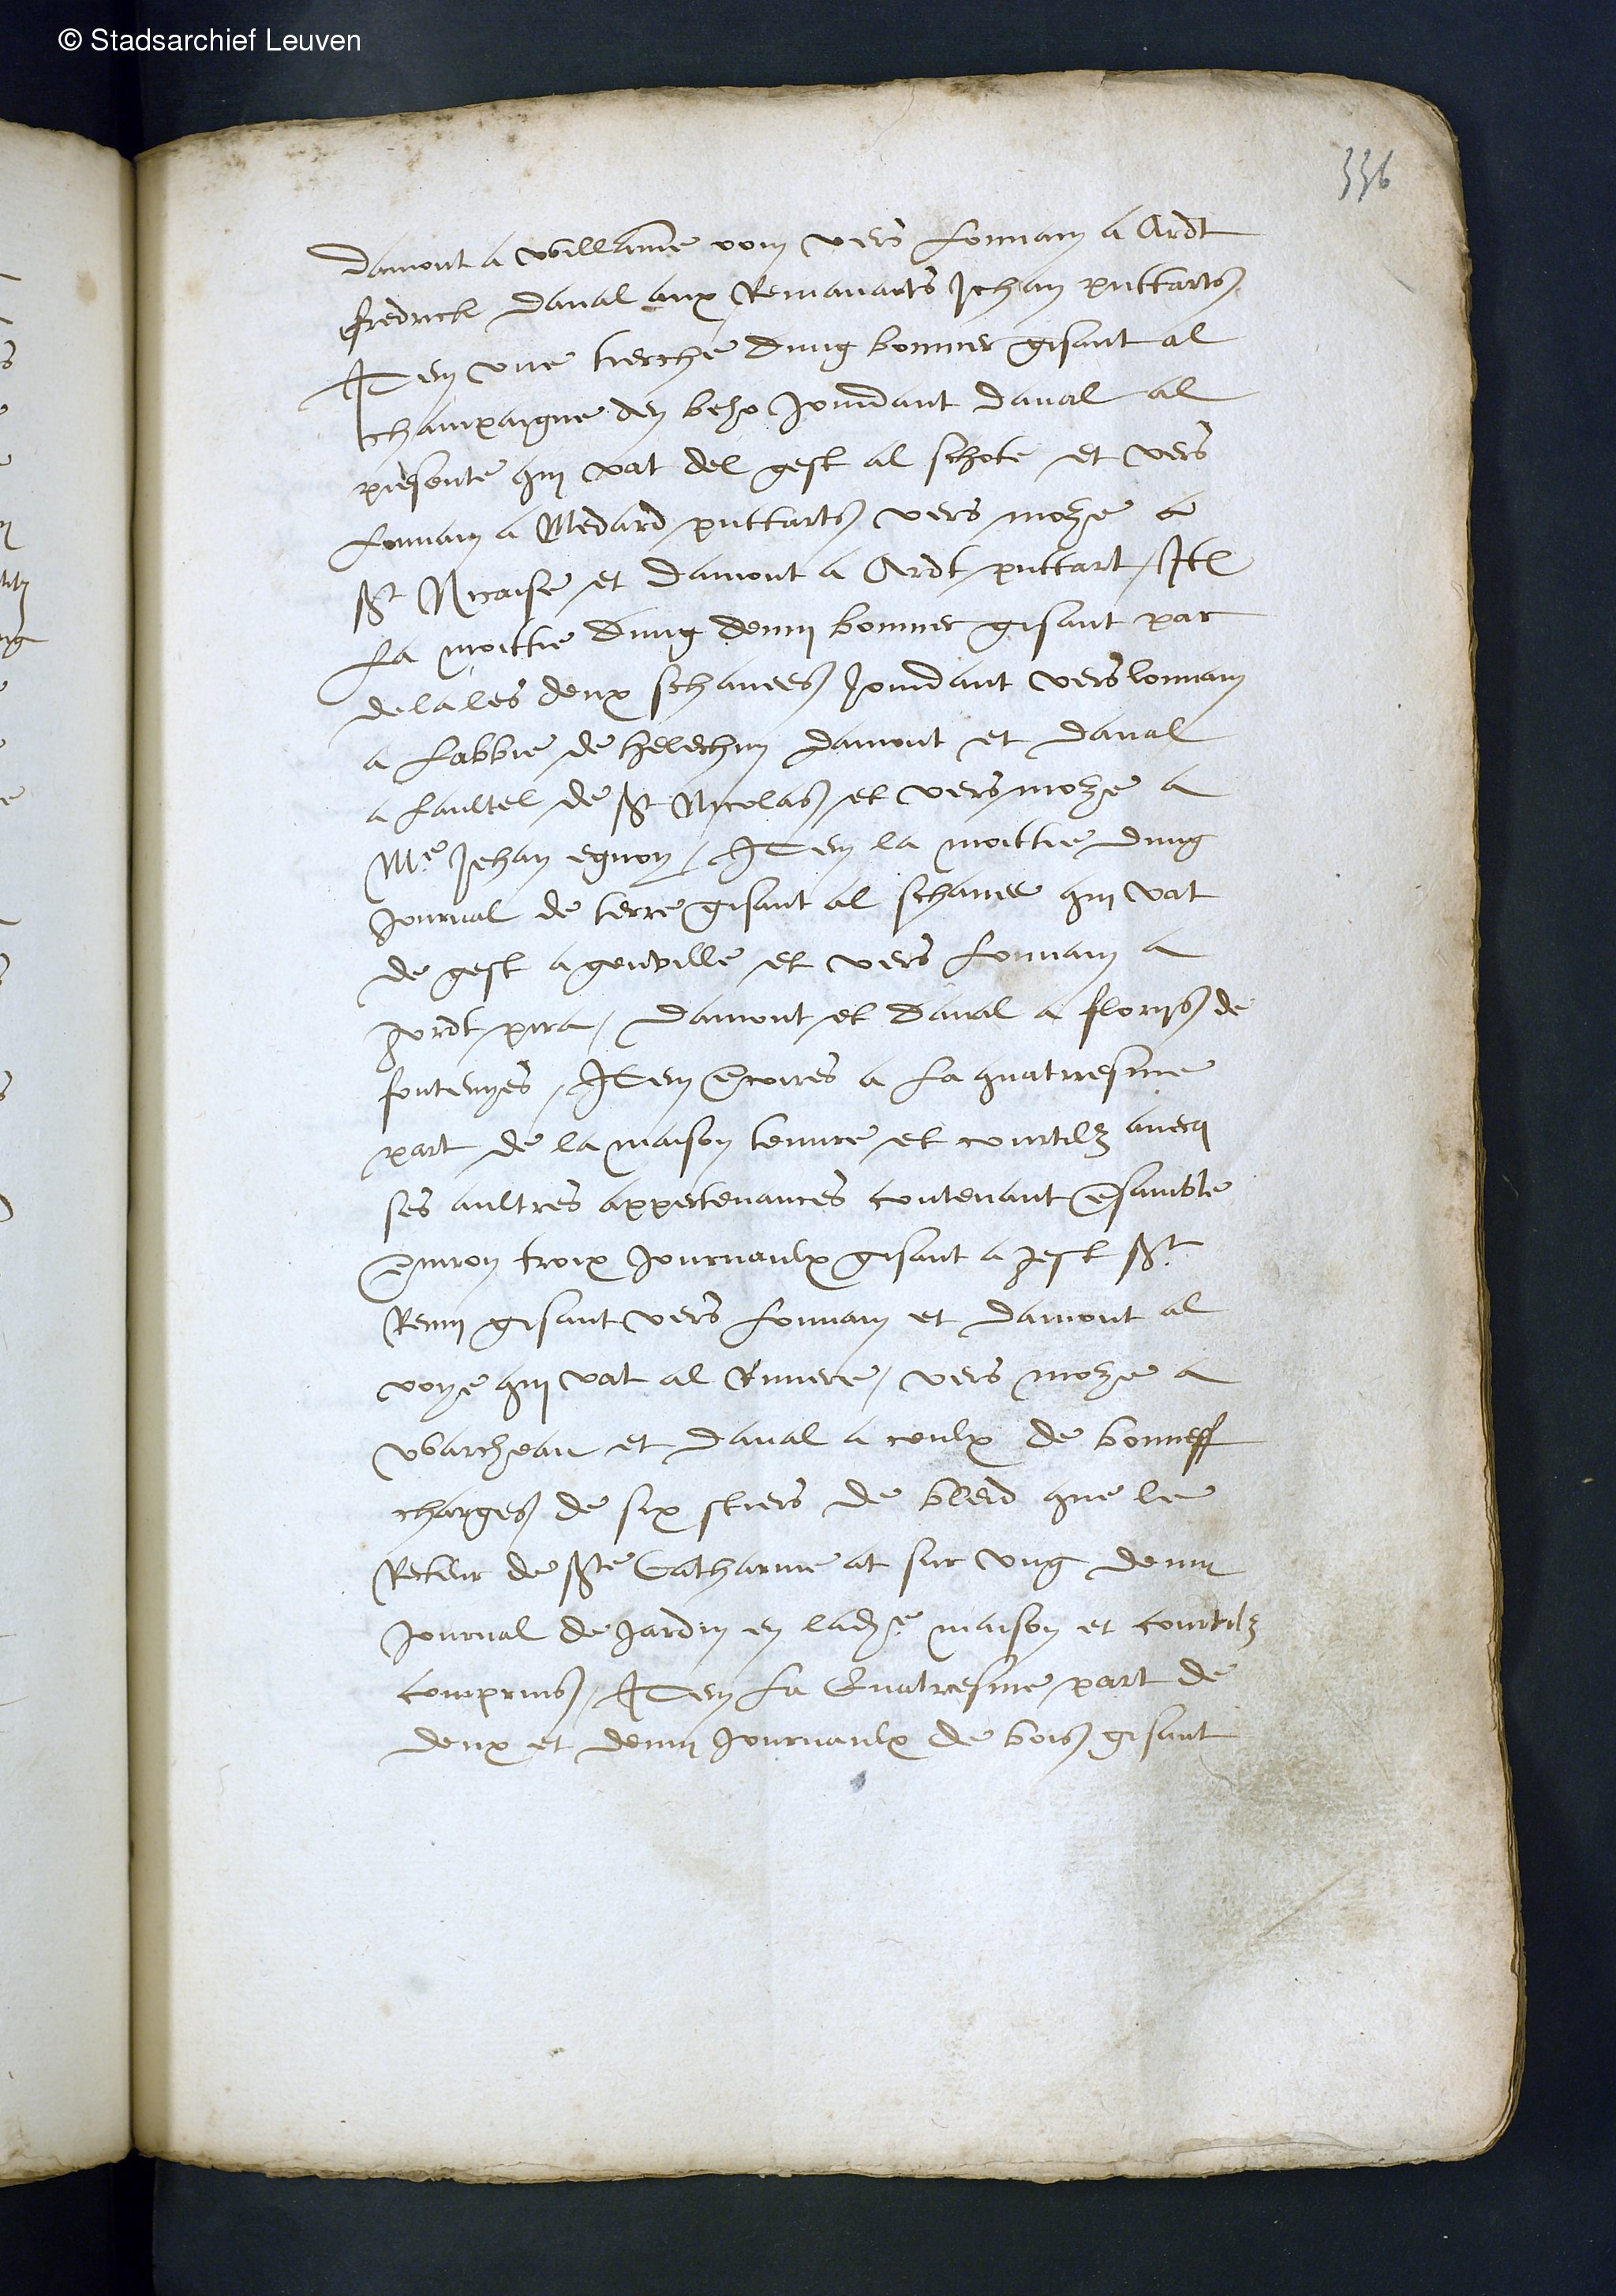 © Stadsarchief Leuven
336
damont a willame vom vers louvain a Ardt
fredrick daval aux Remanants Jehan puttarts
Item une tierche dung bonnier gisant al
champaigne den beho joindant daval al
piesente qui vat del gest al schote et vers
louvain a Medard puttarts vers moze a
st Nicaise et damont a Ardt puttart / Itē
la moittie dung demy bonnier gisant par
dela les deux schavees joindant vers louvain
a labbie de helechin damont et daval
a laultel de st Nicolas et vers moze a
Me Jehan egnoy / Item la moittie dung
journal de terre gisant al schavee qui vat
de gest a genville et vers louvain a
pira / damont et daval a floryss de
fontenyes / Item encoires a la quatriesme
part de la maison tenure et courtilz avecq
ses aultres appertenances contenant ensamble
environ troix journaulx gisant a gest st
Remy gisant vers louvain et damont al
voye qui vat al Riviere / vers moze a
warheau et daval a ceulx de bonneff
charges de six stiers de bleid que le
Recteur de ste Catharine at sur ung demy
journal de jardin en lade maison et courtilz
comprins / Item la Quatriesme part de
deux et demy journaulx de bois gisant